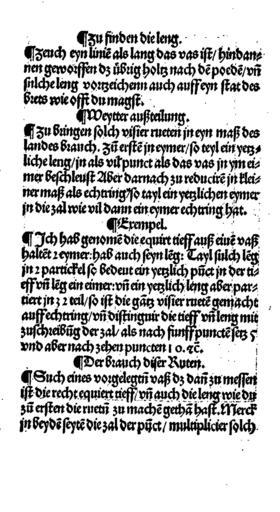 ¶Zu finden die leng.
¶Zeuch eyn linie als lang das vas ist/ hindan
nen geworffen dz übrig holtz nach dē poedē/ vñ
sülche leng vorzeichenn auch auff eyn stat des
brets wie offt du magst.
¶Weytter außteilung.
¶Zu bringen solch visier rueten in eyn maß des
landes brauch. Zū erstē in eymer/ so teyl ein yetz
liche leng/ in als vil punct als das vas in ym ei
mer beschleust Aber darnach zu reducirē in klei
ner maß als echtring/ so tayl ein yetzlichen eymer
in die zal wie vil dann ein eymer echtring hat.
¶Exempel.
¶Ich hab genomē die equirt tieff auß einē vaß
haltēt 2 eymer: hab auch seyn lēg: Tayl sülch lēg
in 2 partickel so bedeut ein yetzlich pūct in der ti
eff vñ lēg ein eimer: vñ ein yetzlich leng aber par
tiert in 32 teil/ so ist die gātz visier ruetē gemacht
auff echtring/ vñ distinguir die tieff vñ leng mit
zuschreibūg der zal/ als nach funff punctē setz 5
vnd aber nach zehen puncten 10. ⁊c̄.
¶Der brauch diser Ruten.
¶Such eines vorgelegtñ vaß dz dañ zu messen
ist die recht equiert tieff/ vñ auch die leng wie du
zū ersten die ruetñ zu machē gethā hast. Merck
in beydē seytē die zal der pūct/ multiplicier solch